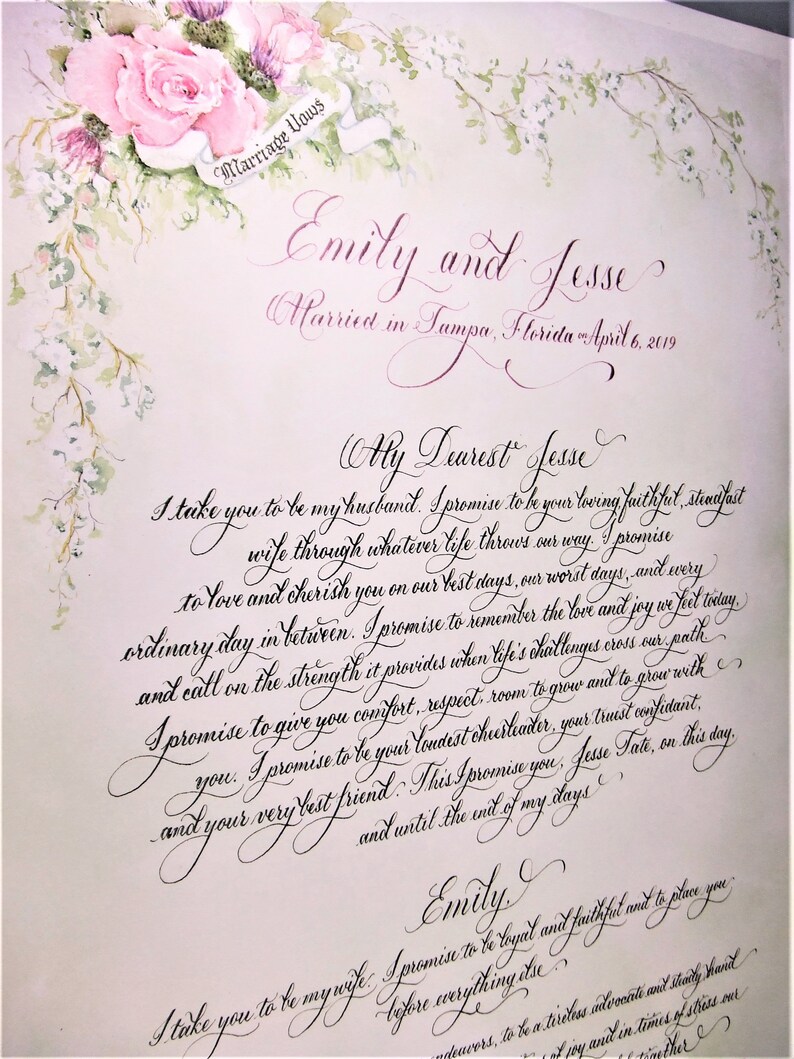 Marriage Vows
Emily and Jesse
Married in Tampa, Florida on April 6, 2019
My Dearest Jesse
I take you to be my husband. I promise to be your loving, faithful, steadfast
wife through whatever life throws our way. I promise
to love and cherish you on our best days, our worst days, and every
ordinary day in between. I promise to remember the love and joy we feel today,
and call on the strength it provides when life's challenges cross our path.
I promise to give you comfort, respect, room to grow and to grow with
you. I promise to be your loudest cheerleader, your truest confidant,
and your very best friend. This I promise you, Jesse Tate, on this day,
and until the end of my days
Emily,
I take you to be my wife. I promise to be loyal and faithful and to place you
before everything else.
endeavors, to be a tireless advocate and steady hand
of joy and in times of stress our
together